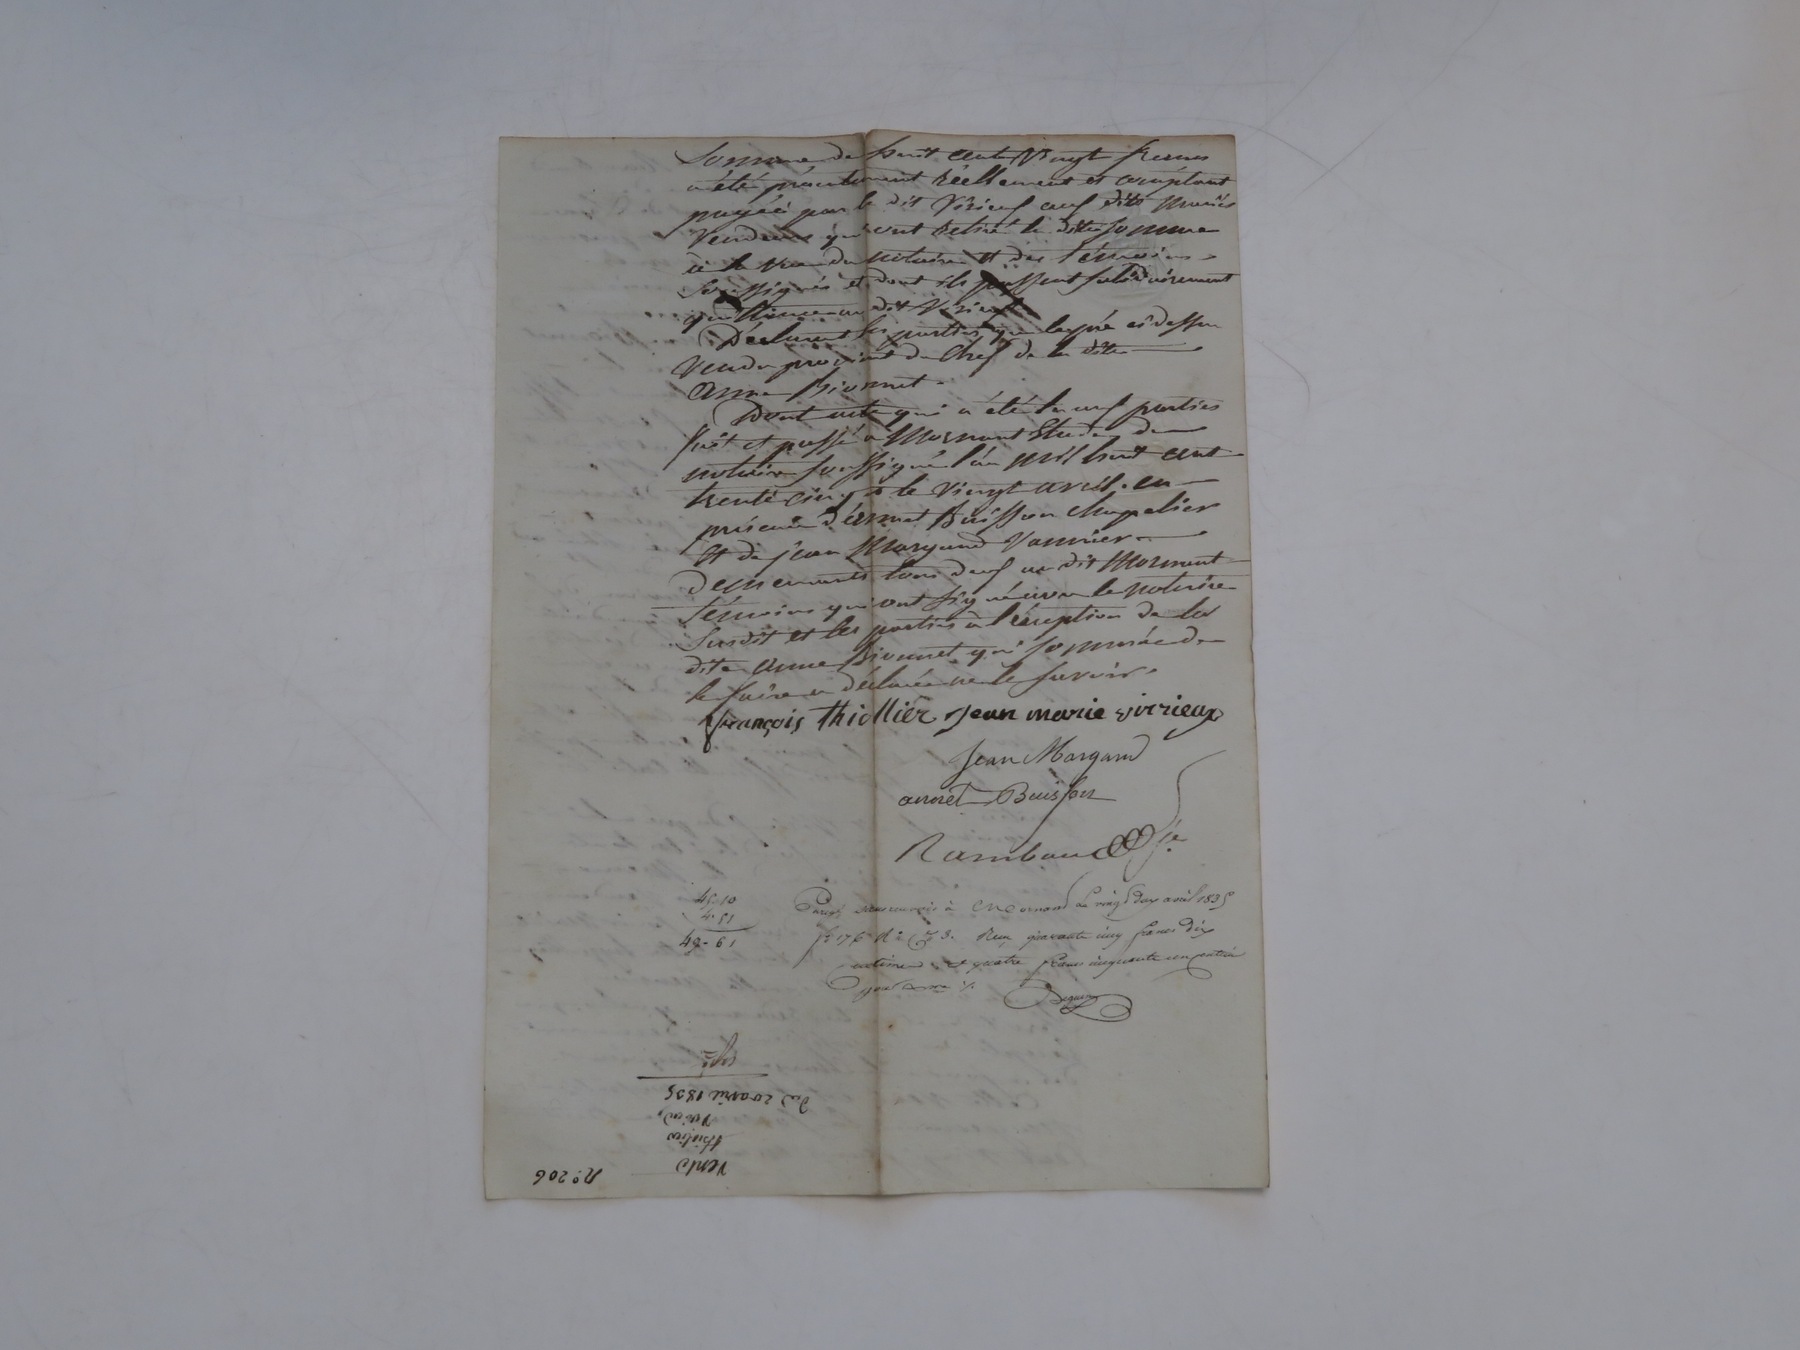 Somme de huit cent vingt francs
a été présentement réellement et comptant
payée par le dit Virieux aux dits Mariés
Vendeurs qui ont retiré la dite somme
à la vue du notaire et des témoins
soussignés et dont ils passent solidairement
quittance au dit Virieux
Déclarent les parties que le pré ci dessus
Vendu provient du Chef de la dite
Anne Bionnet.
Dont acte qui a été lu aux parties
fait et passé à Mornant Etude du
notaire soussigné l'an mil huit cent
trente cinq & le vingt avril. en
présence d'Annet Buisson chapelier
et de Jean Margand Vannier
demeurants tous deux au dit Mornant
témoins qui ont signé avec le notaire
susdit et les parties à l'éxception de la
dite Anne Bionnet qui sommée de
le faire a déclaré ne le savoir.
françois thiollier Jean marie virrieux
Jean Margand
annet Buisson
Rambaud
45-10
4-51
49-61
à Mornant Le vingt deux avril 1835
fo 176 Ro Ce 3. Reçu quarante cinq francs dix
centimes, et quatre francs cinquante un centimes
Vente
thiolier
Virieu
du 20 avril 1835
No 206